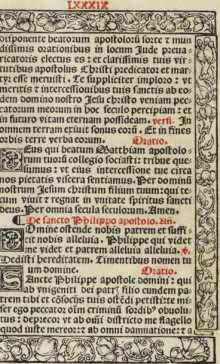 LXXXIX
disponente beatorum apostolorũ sorte τ mun
dissimis orationibus in locum Jude preua
ricatoris electus es: et clarissimis tuis vir
tutibus apostolus Christi predicator: et mar
tyr: esse meruisti. Te suppliciter imploro: vt
meritis τ intercessionibus tuis sanctis ab eo
dem domino nostro Jesu christo veniam pec
catorum meorum in hoc seculo percipiam: et
in futuro vitam eternam possideam. versi. In
omnem terram exiuit sonus eorũ. Et in fines
orbis terre verba eorum. Oratio.
Deus qui beatum Matthiam apostolo
rum tuorũ collegio sociasti: tribue que
sumus: vt eius intercessione tue circa
nos pietatis viscera sentiamus. Per dominũ
nostrum Jesum christum filium tuum: qui te
cum viuit τ regnat in vnitate spiritus sancti
deus. Per omnia secula seculorum. Amen.
De sancto Philippo apostolo. añ.
Domine ostende nobis patrem et suffi
cit nobis alleluia. Philippe qui videt
me videt et patrem alleluia alleluia.
Dedisti hereditatem. Timentibus nomen tu
um domine. Oratio.
Sancte Philippe apostole domini: qui
ab vnigeniti dei patri filio eundem pa
trem tibi et cõsocijs tuis ostẽdi petisti: te mi
ser ego peccator oĩm criminũ sordib' obuolu
tus: deprecor: vt ab oculi districto me flagello
quod iuste mereor: τ ab omni damnatione: τ a